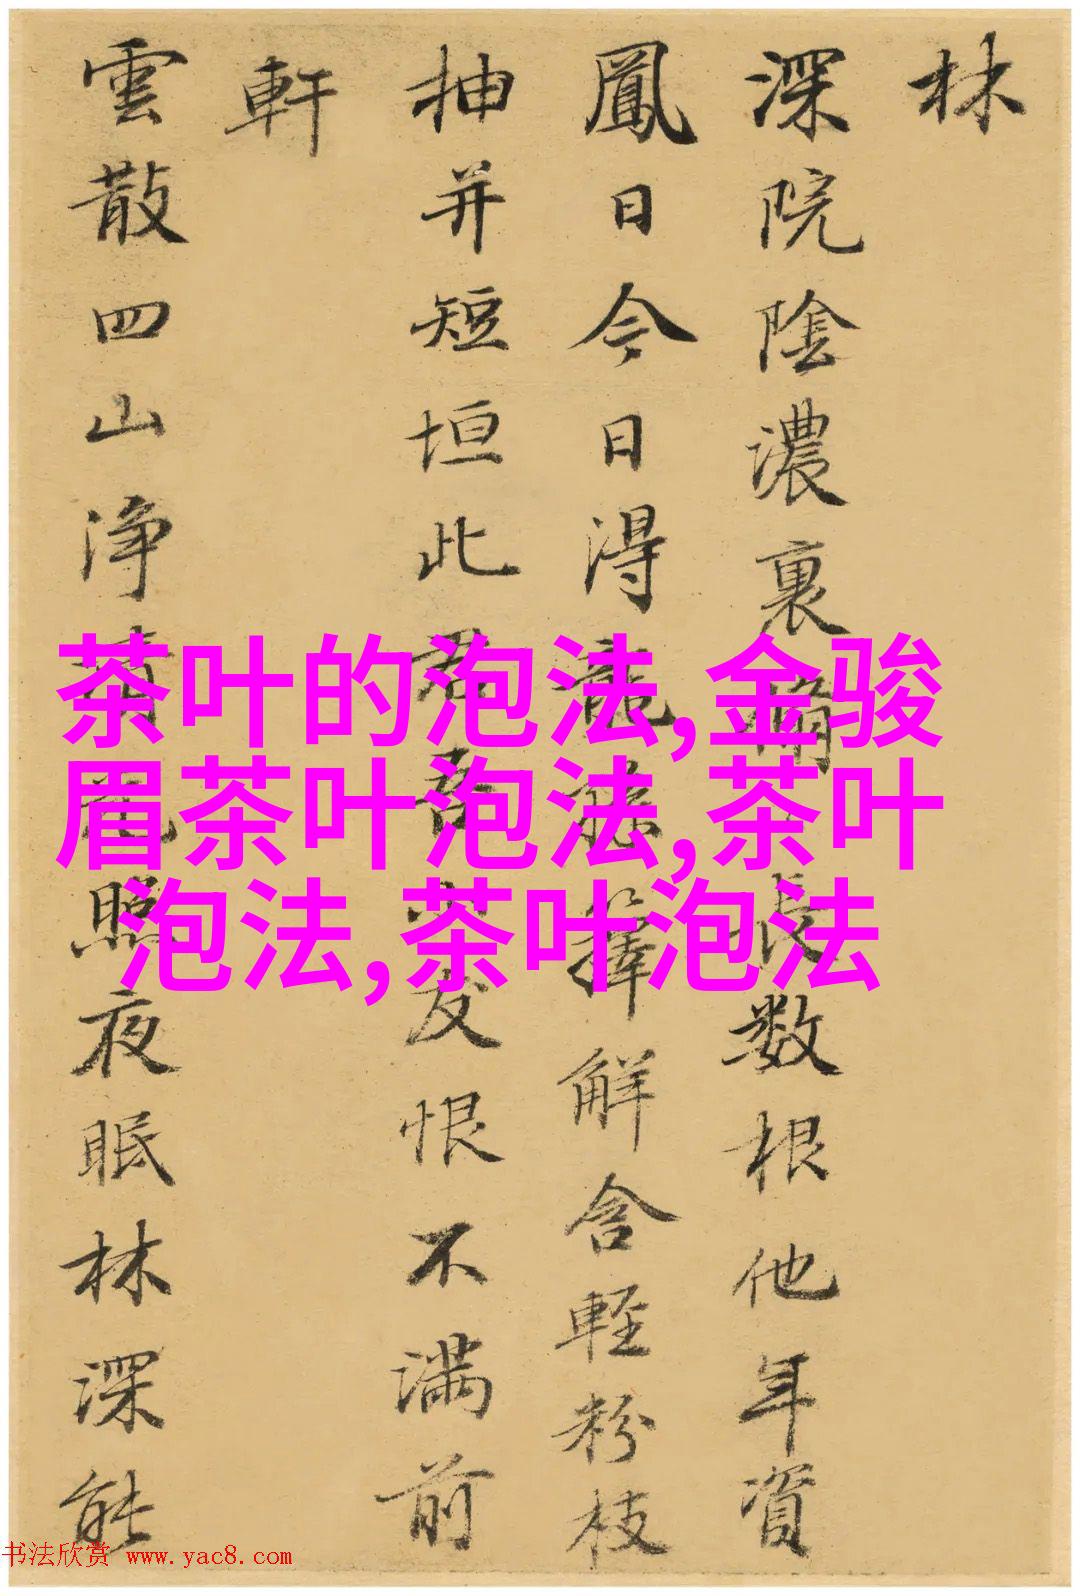 林
深院陰濃裏脩長数根他年資
鳳日今日得龍孫擇解含輕粉枝
抽并短垣此君吾益友恨不满前
軒
雲散四山净清光照夜眠林深能
茶叶的泡法,金骏
眉茶叶泡法,茶叶
泡法,茶叶泡法
书法欣赏 www.yac8.com